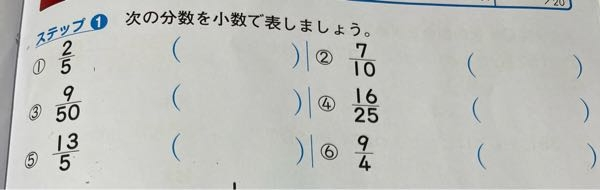 ステップ1 次の分数を小数で表しましょう。
① 2/5 ( ) ② 7/10 ( )
③ 9/50 ( ) ④ 16/25 ( )
⑤ 13/5 ( ) ⑥ 9/4 ( )
/20